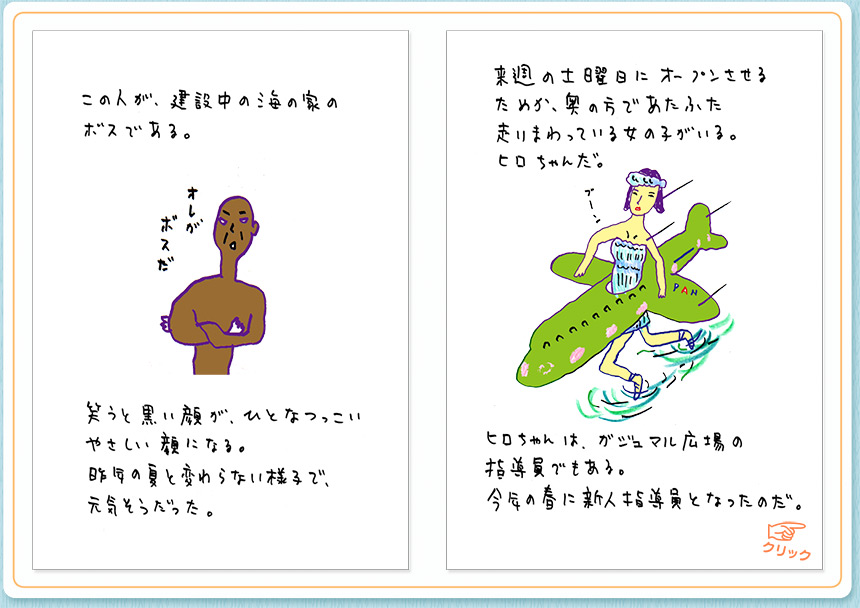 この人が、建設中の海の家の
ボスである。
オレが
ボスだ
笑うと黒い顔が、ひとなつっこい
やさしい顔になる。
昨年の夏と変わらない様子で、
元気そうだった。
来週の土曜日にオープンさせる
ためか、奥の方であたふた
走りまわっている女の子がいる。
ヒロちゃんだ。
ブーン
PAN
ヒロちゃんは、ガジュマル広場の
指導員でもある。
今年の春に新人指導員となったのだ。
クリック